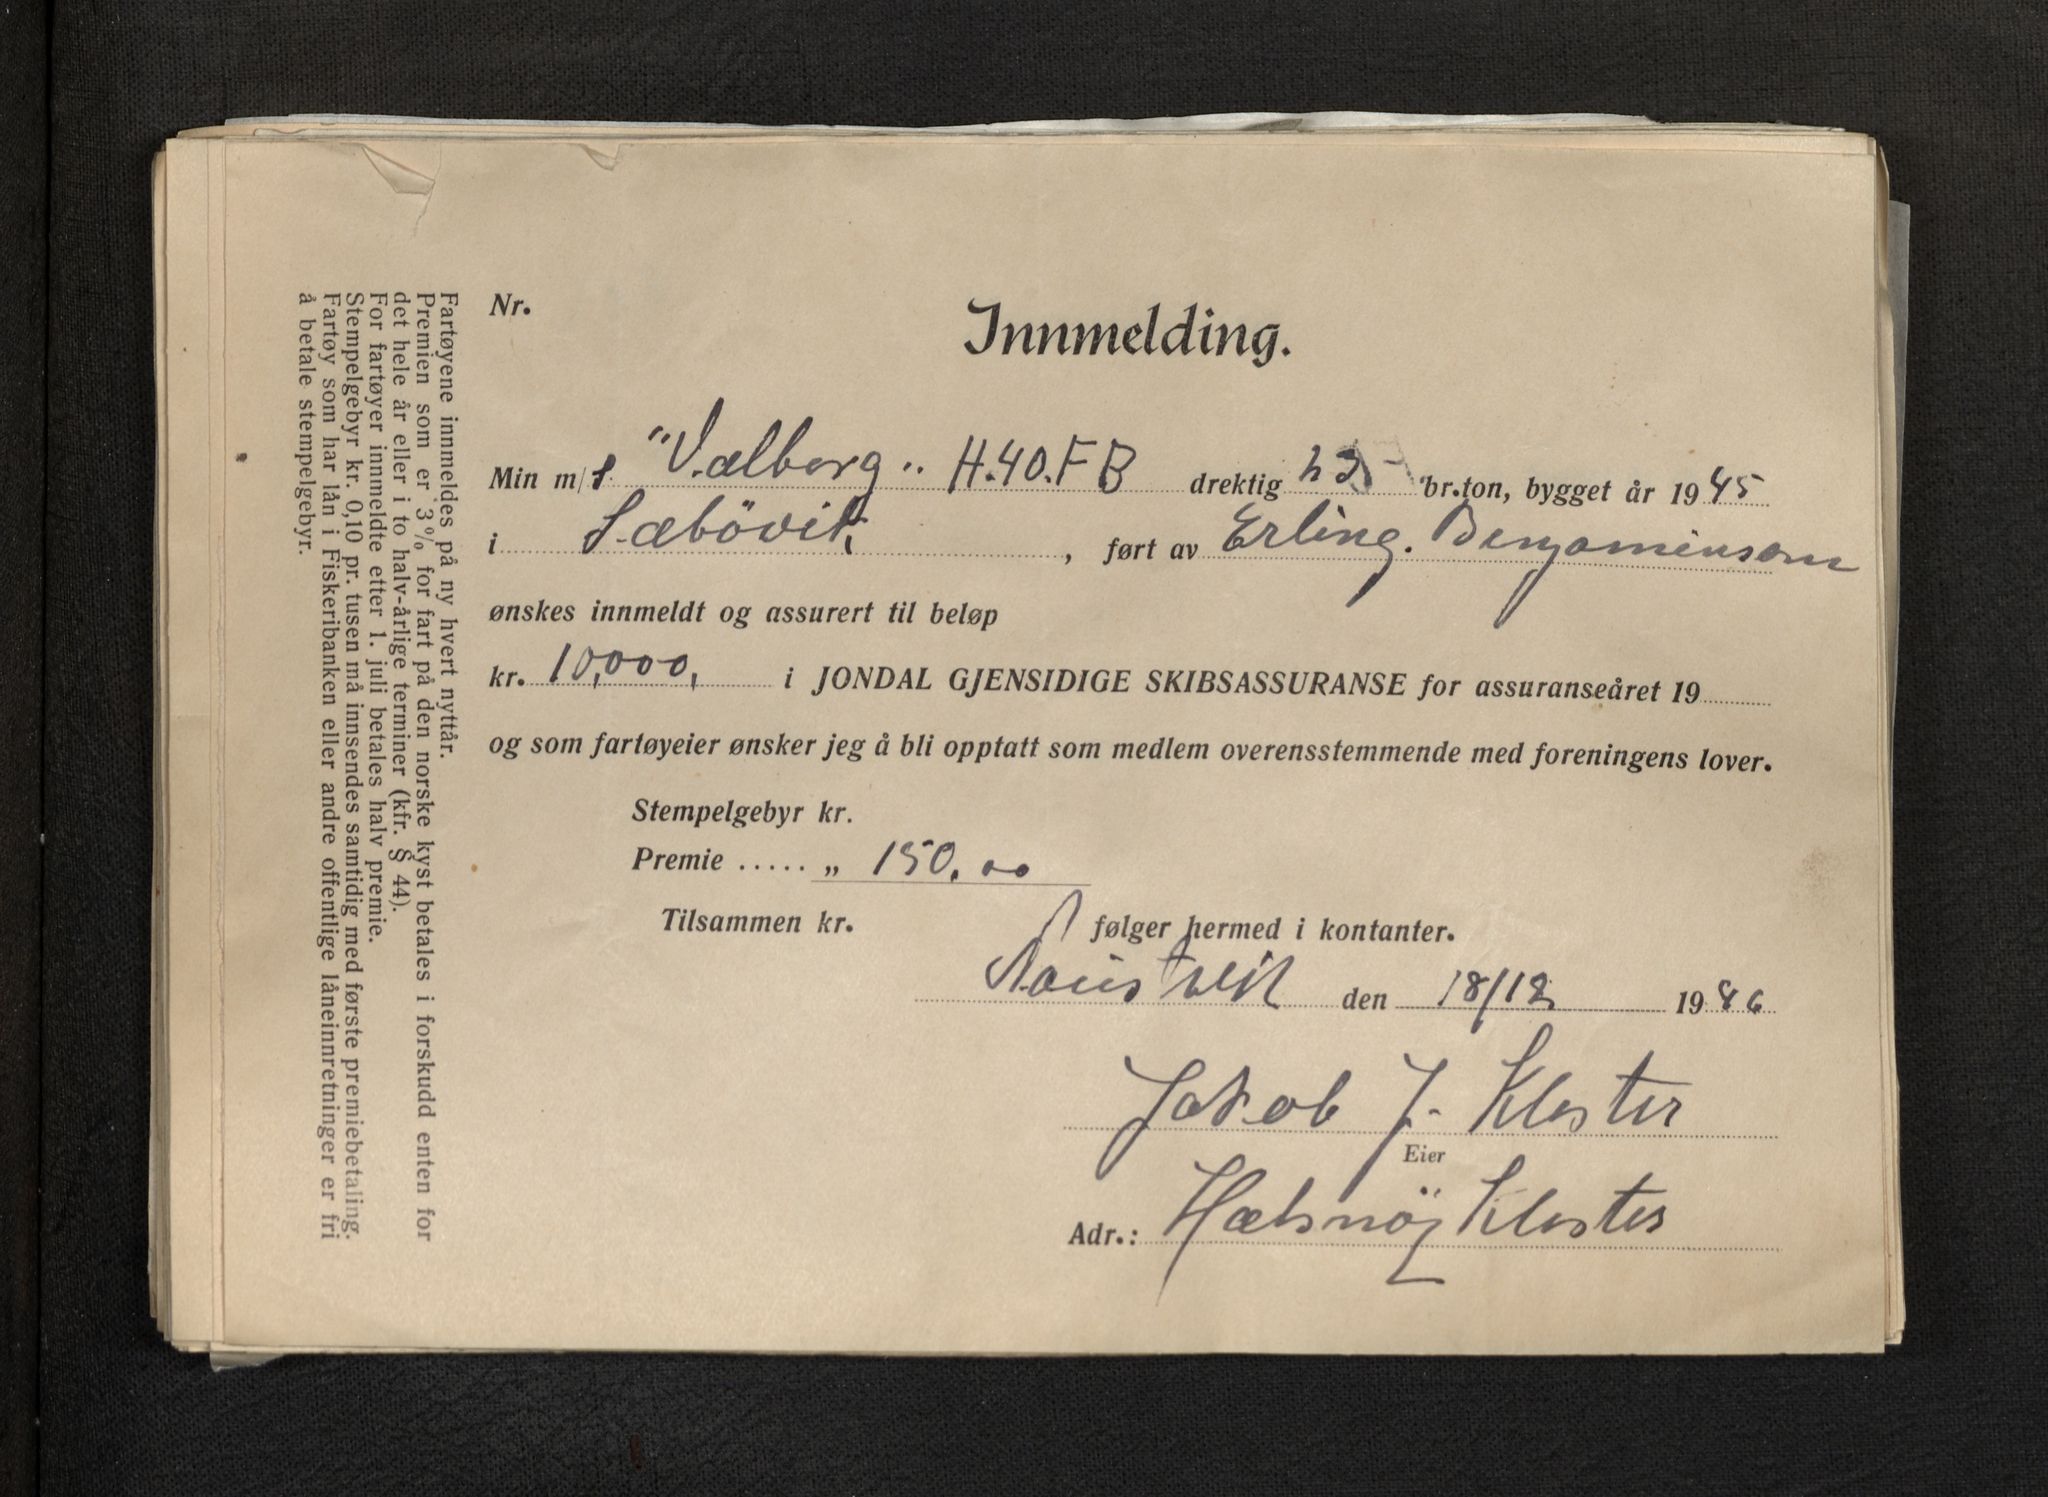 Nr.
Innmelding.
Min m/s "Valborg" H.40.FB drektig br.ton, bygget år 1945
i Sæbövik, ført av Erling. Benjaminsen
ønskes innmeldt og assurert til beløp
kr. 10,000, i JONDAL GJENSIDIGE SKIBSASSURANSE for assuranseåret 19
og som fartøyeier ønsker jeg å bli opptatt som medlem overensstemmende med foreningens lover.
Stempelgebyr kr.
Premie ..... „ 150.00
Tilsammen kr. følger hermed i kontanter.
den 18/12 1946
Jakob J. Kloster
Eier
Adr.: Halsnöy Kloster
Fartøyene innmeldes på ny hvert nyttår.
Premien som er 3% for fart på den norske kyst betales i forskudd enten for
det hele år eller i to halv-årlige terminer (kfr. § 44).
For fartøyer innmeldte etter 1. juli betales halv premie.
Stempelgebyr kr. 0,10 pr. tusen må innsendes samtidig med første premiebetaling.
Fartøy som har lån i Fiskeribanken eller andre offentlige låneinnretninger er fri
å betale stempelgebyr.